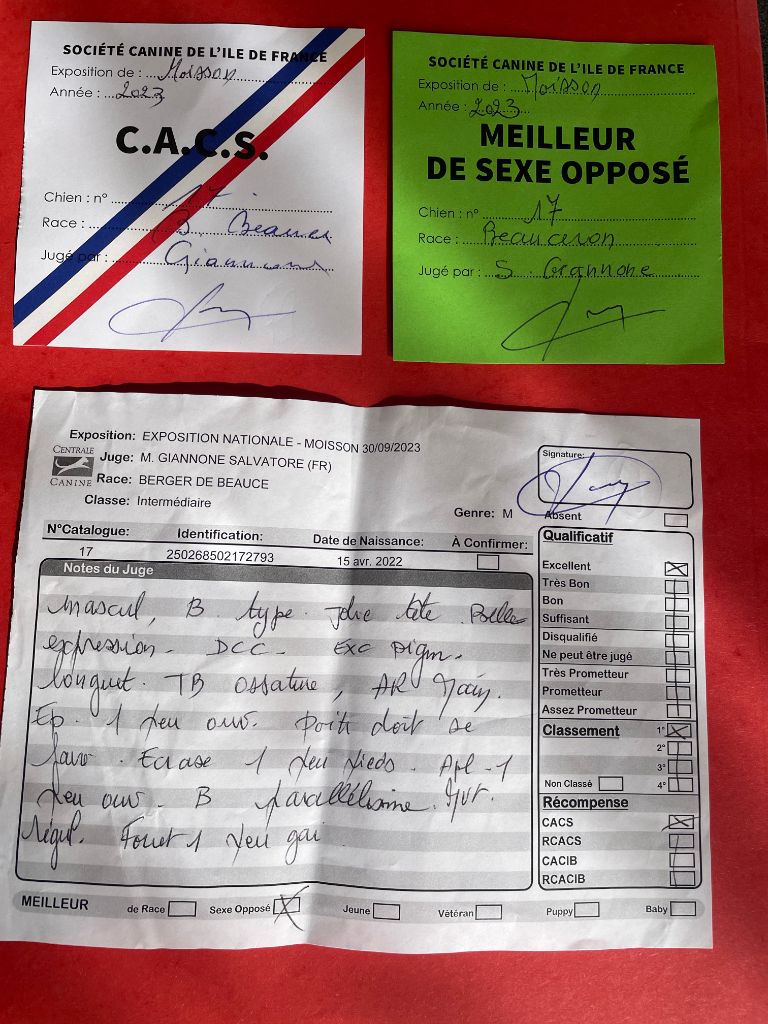 SOCIÉTÉ CANINE DE L'ILE DE FRANCE
Exposition de : Moisson
Année : 2023
C.A.C.S.
Chien : n° 17
Race : B. Beauce
Jugé par : Giannone
SOCIÉTÉ CANINE DE L'ILE DE FRANCE
Exposition de : Moisson
Année : 2023
MEILLEUR
DE SEXE OPPOSÉ
Chien : n° 17
Race : Beauceron
Jugé par : S. Giannone
Exposition: EXPOSITION NATIONALE - MOISSON 30/09/2023
CENTRALE
CANINE
Juge: M. GIANNONE SALVATORE (FR)
Race: BERGER DE BEAUCE
Classe: Intermédiaire
Genre: M
Signature:
Absent
N°Catalogue: Identification: Date de Naissance: À Confirmer:
17 250268502172793 15 avr. 2022
Notes du Juge
Mascul, B type. Jolie tête. Belle
expression. DCC. Exc pigm.
longuet. TB ossature, AR
Ep. 1 peu ouv. Poitr doit se
Ecrase 1 peu pieds. Apl. 1
peu ouv. B parallélisme. Mvt.
régul. Fouet 1 peu gai
Qualificatif
Excellent
Très Bon
Bon
Suffisant
Disqualifié
Ne peut être jugé
Très Prometteur
Prometteur
Assez Prometteur
Classement 1°
2°
3°
Non Classé 4°
Récompense
CACS
RCACS
CACIB
RCACIB
MEILLEUR de Race Sexe Opposé Jeune Vétéran Puppy Baby